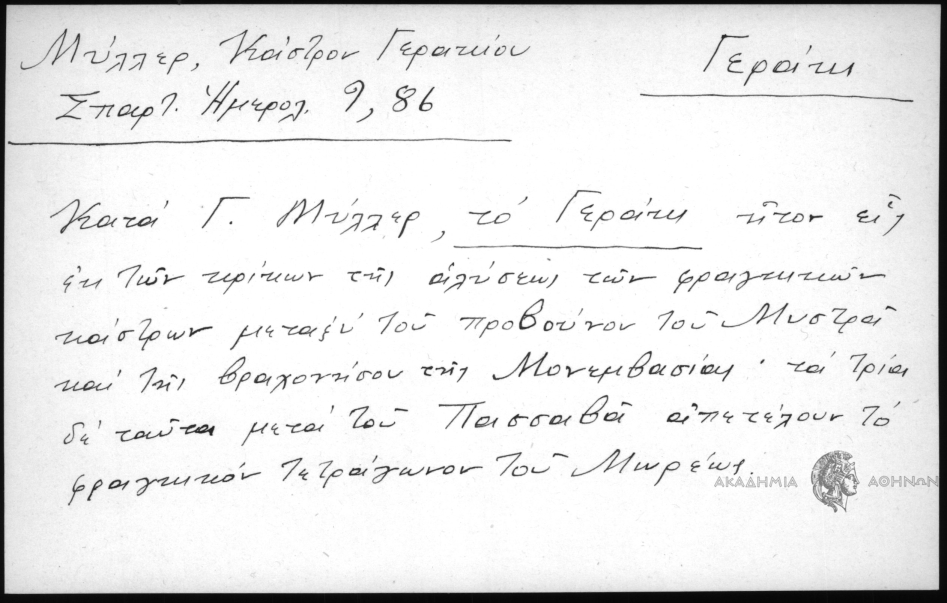 Μύλλερ, Κάστρον Γερακίου
Γεράκι
Σπαρτ. Ἡμερολ. 9, 86
Κατά Γ. Μύλλερ, τό Γεράκι ἦτον εἷς
ἐκ τῶν κρίκων τῆς ἁλύσεως τῶν φραγκικῶν
κάστρων μεταξύ τοῦ προβούνου τοῦ Μυστρᾶ
καί τῆς βραχονήσου τῆς Μονεμβασίας· τά τρία
δέ ταῦτα μετά τοῦ Πασσαβᾶ ἀπετέλουν τό
φραγκικόν τετράγωνον τοῦ Μωρέως.
ΑΚΑΔΗΜΙΑ ΑΘΗΝΩΝ